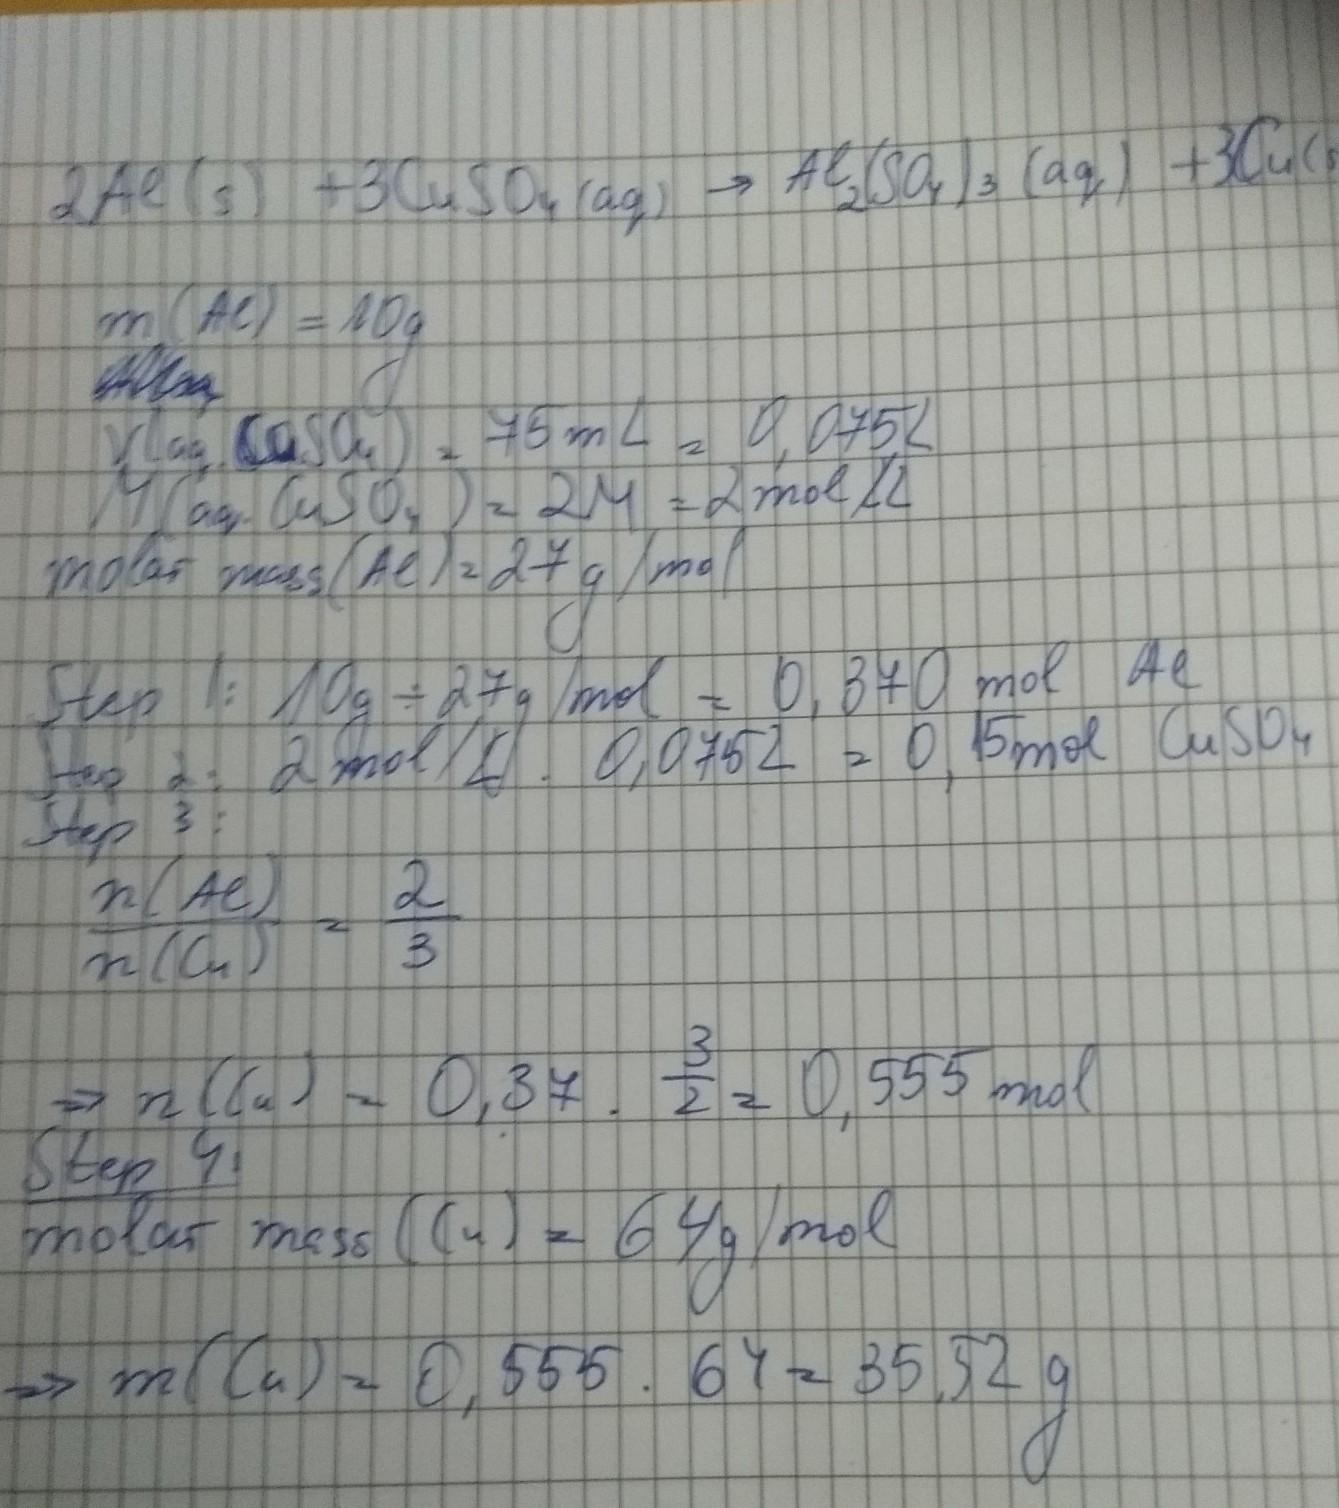 2Al(s) +3CuSO₄(aq) → Al₂(SO₄)₃(aq) +3Cu(s
m(Al) = 10g
V(aq. CuSO₄) = 75mL = 0,075L
M(aq. CuSO₄) = 2M = 2mol/L
molar mass(Al) = 27g/mol
Step 1: 10g ÷ 27g/mol = 0,370 mol Al
Step 2: 2mol/L · 0,075L = 0,15mol CuSO₄
Step 3:
n(Al)/n(Cu) = 2/3
⇒ n(Cu) = 0,37 · 3/2 = 0,555 mol
Step 4:
molar mass(Cu) = 64g/mol
⇒ m(Cu) = 0,555 · 64 = 35,52 g